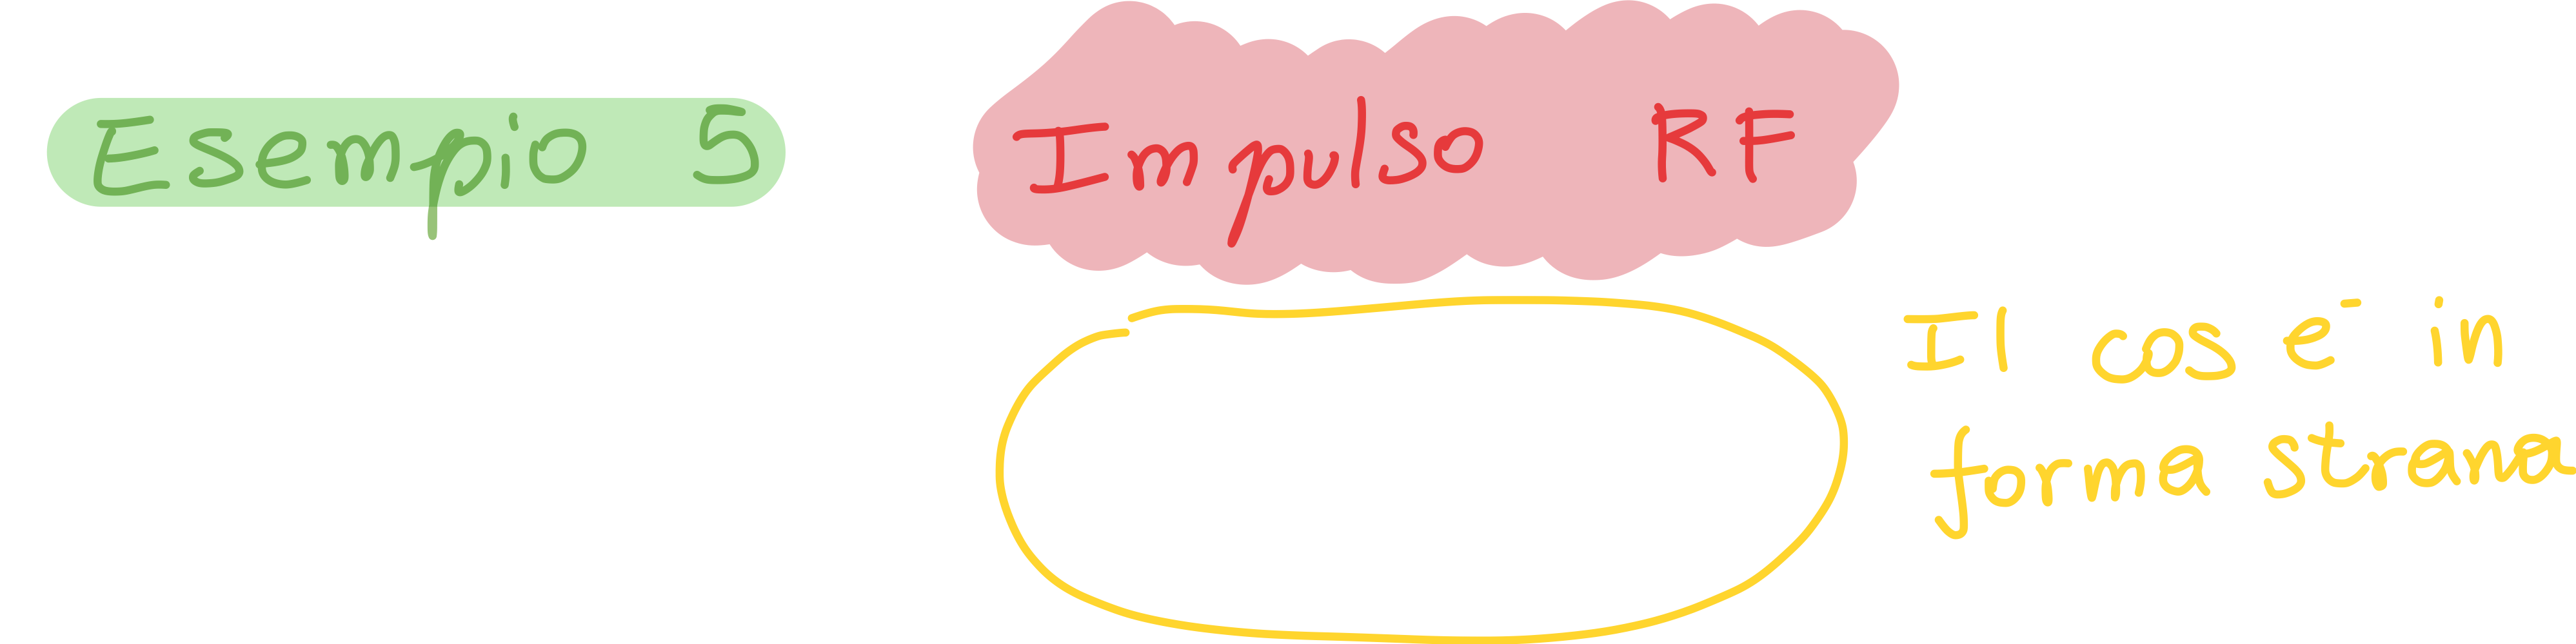 Esempio 5
Impulso RF
Il cos e- in
forma strana